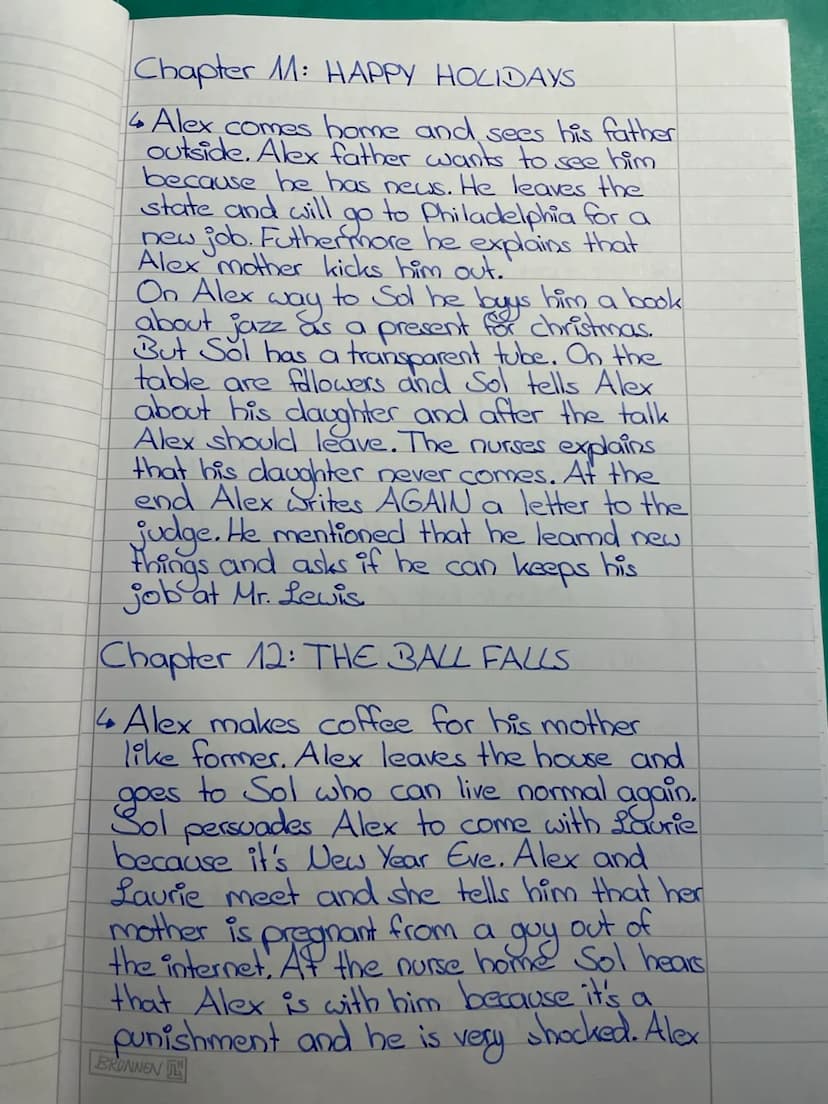 Chapter 11: HAPPY HOLIDAYS
↳ Alex comes home and sees his father
outside. Alex father wants to see him
because he has news. He leaves the
state and will go to Philadelphia for a
new job. Futhermore he explains that
Alex mother kicks him out.
On Alex way to Sol he buys him a book
about jazz as a present for christmas.
But Sol has a transparent tube. On the
table are followers and Sol tells Alex
about his daughter and after the talk
Alex should leave. The nurses explains
that his daughter never comes. At the
end Alex writes AGAIN a letter to the
judge. He mentioned that he learnd new
things and asks if he can keeps his
job at Mr. Lewis.
Chapter 12: THE BALL FALLS
↳ Alex makes coffee for his mother
like former. Alex leaves the house and
goes to Sol who can live normal again.
Sol persuades Alex to come with Laurie
because it's New Year Eve. Alex and
Laurie meet and she tells him that her
mother is pregnant from a guy out of
the internet. At the nurse home Sol hears
that Alex is with him because it's a
punishment and he is very shocked. Alex
BRUNNEN